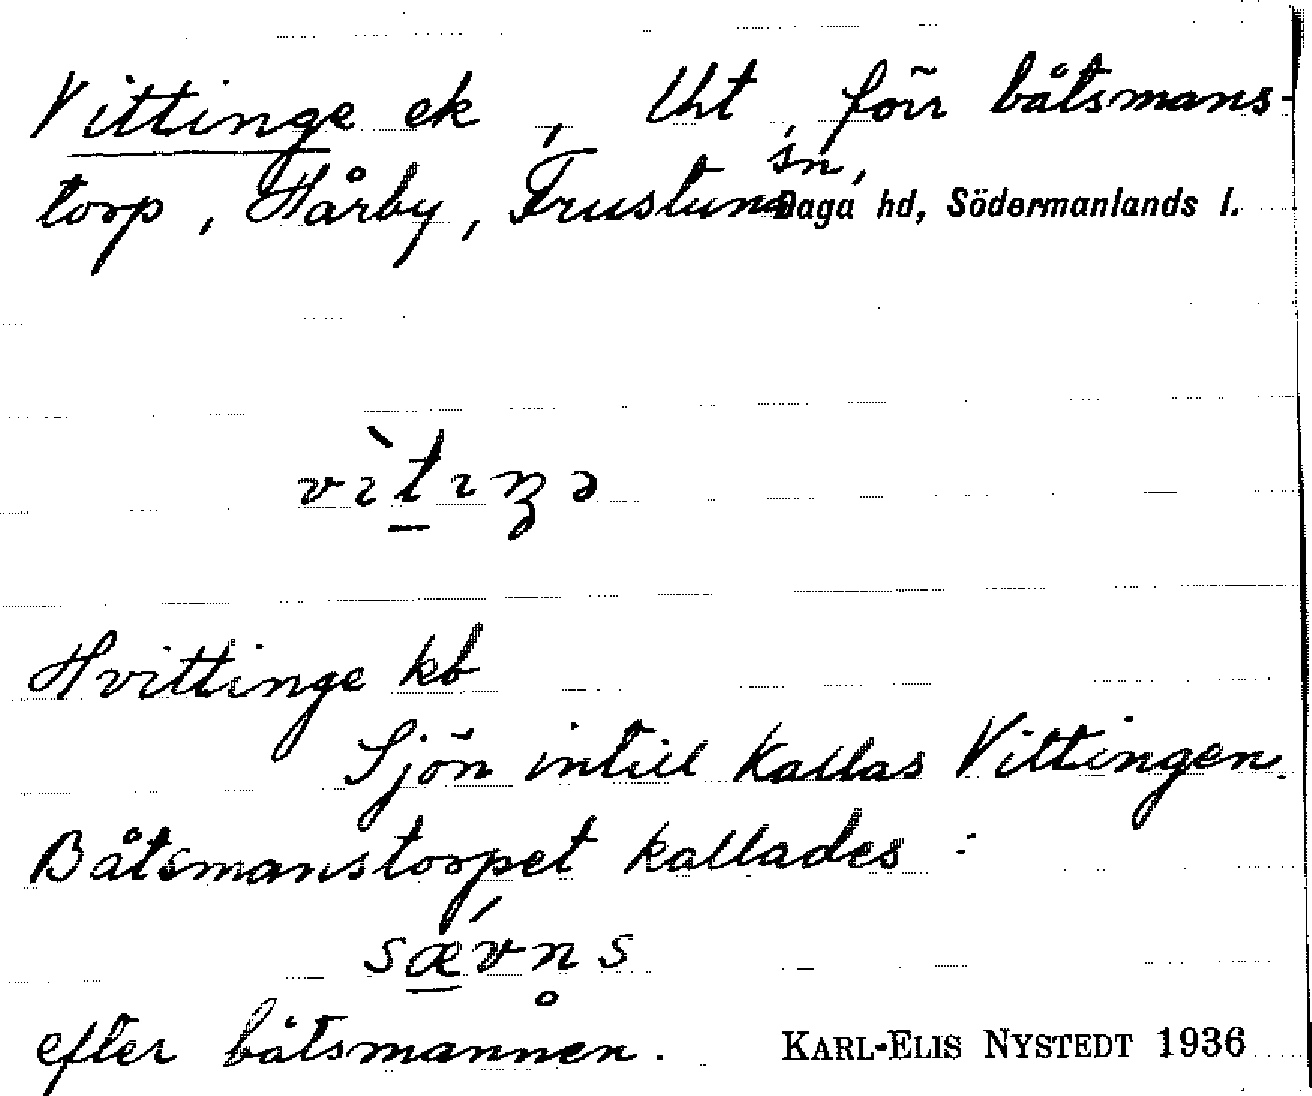 Vittinge ek, Uht, förr båtsmans-
torp, Hårby, Frustuna sn, Daga hd, Södermanlands l.
Hvittinge kb
Sjön intill kallas Vittingen.
Båtsmanstorpet kallades :
sævns
efter båtsmannen. KARL-ELIS NYSTEDT 1936